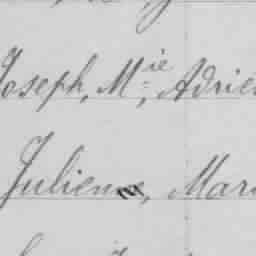 Joseph, M.ie, Adrien
Julienne, Mari